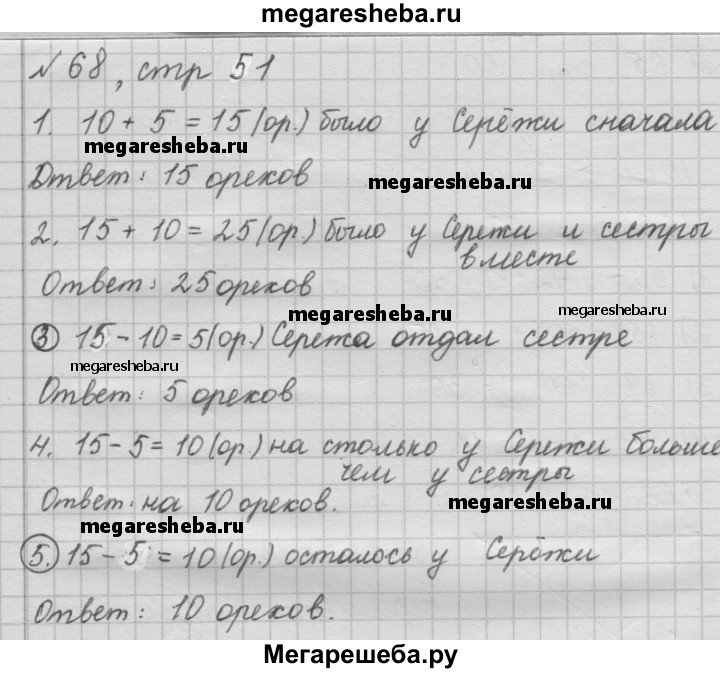 megaresheba.ru
№ 68, стр 51
1. 10 + 5 = 15 (ор.) было у Серёжи сначала
megaresheba.ru
Ответ: 15 орехов
megaresheba.ru
2. 15 + 10 = 25 (ор.) было у Сережи и сестры
вместе
Ответ: 25 орехов
megaresheba.ru
megaresheba.ru
3 15 - 10 = 5 (ор.) Сережа отдал сестре
megaresheba.ru
Ответ: 5 орехов
4. 15 - 5 = 10 (ор.) на столько у Сережи больше
чем у сестры
Ответ: на 10 орехов.
megaresheba.ru
megaresheba.ru
5. 15 - 5 = 10 (ор.) осталось у Серёжи
Ответ: 10 орехов.
Мегарешеба.ру